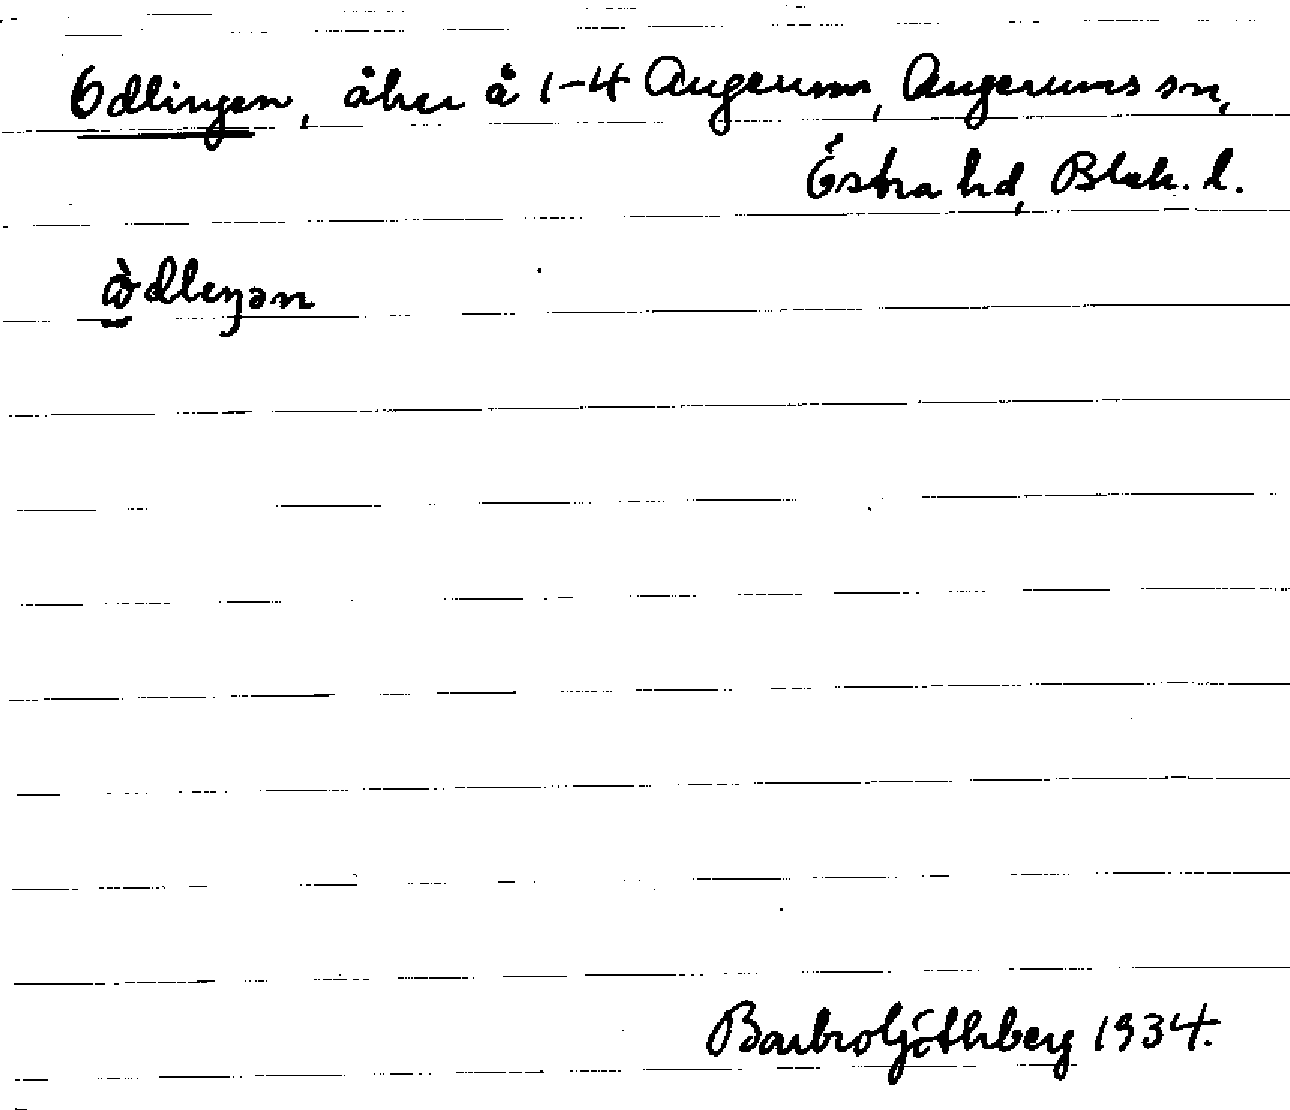 Odlingen, åker å 1-4 Augerum, Augerums sn,
Östra hd, Blek. l.
ὼdleŋən
Barbro Göthberg 1934.